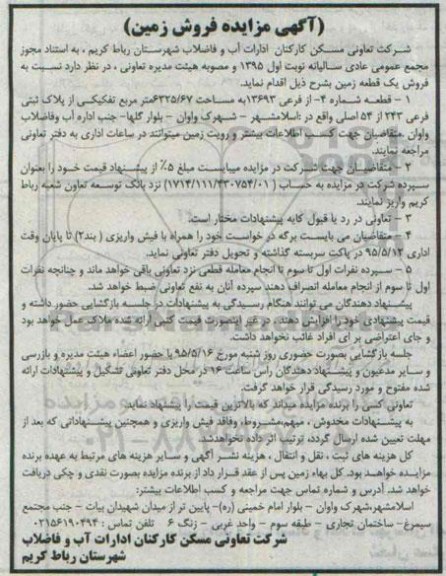 (آگهی مزایده فروش زمین)
شرکت تعاونی مسکن کارکنان ادارات آب و فاضلاب شهرستان رباط کریم ، به استناد مجوز
مجمع عمومی عادی سالیانه نوبت اول ۱۳۹۵ و مصوبه هیئت مدیره تعاونی ، در نظر دارد نسبت به
فروش یک قطعه زمین بشرح ذیل اقدام نماید.
۱ - قطعه شماره ۴- از فرعی ۱۳۶۹۳به مساحت ۶۳۲۵/۶۷متر مربع تفکیکی از پلاک ثبتی
فرعی ۲۴۳ از ۵۴ اصلی واقع در :اسلامشهر - شهرک واوان - بلوار گلها- جنب اداره آب وفاضلاب
واوان .متقاضیان جهت کسب اطلاعات بیشتر و رویت زمین میتوانند در ساعات اداری به دفتر تعاونی
مراجعه نمایند.
۲ - متقاضیان جهت شرکت در مزایده میبایست مبلغ ۵٪ از پیشنهاد قیمت خود را بعنوان
سپرده شرکت در مزایده به حساب ( ۱۷۱۴/۱۱۱/۴۳۰۷۵۴/۰۱) نزد بانک توسعه تعاون شعبه رباط
کریم واریز نمایند.
۳ - تعاونی در رد یا قبول کلیه پیشنهادات مختار است.
۴ - متقاضیان می بایست برگه در خواست خود را همراه با فیش واریزی ( بند۲) تا پایان وقت
اداری ۹۵/۵/۱۲ در پاکت سربسته گذاشته و تحویل دفتر تعاونی نماید.
۵ - سپرده نفرات اول تا سوم تا انجام معامله قطعی نزد تعاونی باقی خواهد ماند و چنانچه نفرات
اول تا سوم از انجام معامله انصراف دهند سپرده آنان به نفع تعاونی ضبط خواهد شد.
پیشنهاد دهندگان می توانند هنگام رسیدگی به پیشنهادات در جلسه بازگشایی حضور داشته و
قیمت پیشنهادی خود را افزایش دهند، در غیر اینصورت قیمت کتبی ارائه شده ملاک عمل خواهد بود
و جای اعتراضی بر آی افراد غائب نخواهد داشت.
جلسه بازگشایی بصورت حضوری روز شنبه مورخ ۹۵/۵/۱۶ با حضور اعضاء هیئت مدیره و بازرسی
و سایر مدعیون و پیشنهاد دهندگان رأس ساعت ۱۶ در محل دفتر تعاونی تشکیل و پیشنهادات ارائه
شده مفتوح و مورد رسیدگی قرار خواهد گرفت.
تعاونی کسی را برنده مزایده میداند که بالاترین قیمت را پیشنهاد نماید.
به پیشنهادات مخدوش ، مبهم،مشروط، وفاقد فیش واریزی و همچنین پیشنهاداتی که بعد از
مهلت تعیین شده ارسال گردد، ترتیب اثر داده نخواهدشد.
کل هزینه های ثبت ، نقل و انتقال ، هزینه نشر آگهی و سایر هزینه های مرتبط به عهده برنده
مزایده خواهد بود. کل بهاء زمین پس از عقد قرار داد از برنده مزایده بصورت نقدی و چکی دریافت
خواهد شد. آدرس و شماره تماس جهت مراجعه و کسب اطلاعات بیشتر:
اسلامشهر،شهرک واوان - بلوار امام خمینی (ره)- پایین تر از میدان شهیدان بیات - جنب مجتمع
سیمرغ- ساختمان تجاری - طبقه سوم - واحد غربی - زنگ ۶ تلفن تماس : ۰۲۱۵۶۱۹۰۴۹۴
شرکت تعاونی مسکن کارکنان ادارات آب و فاضلاب
شهرستان رباط کریم